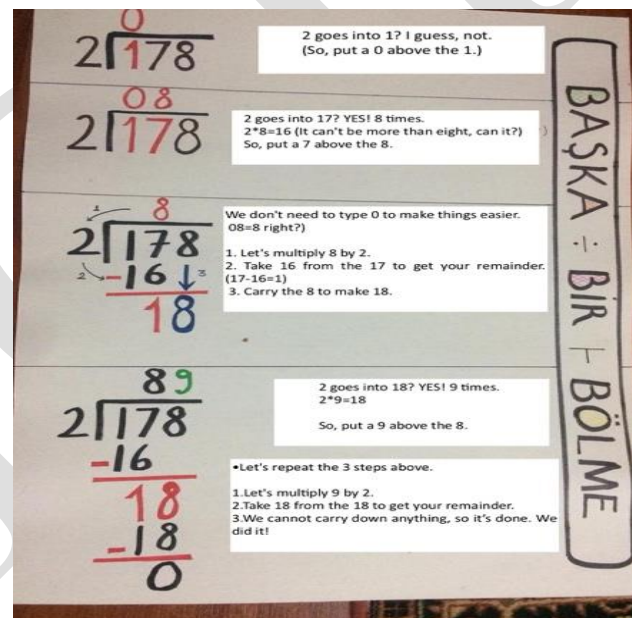 0
2 178
2 goes into 1? I guess, not.
(So, put a 0 above the 1.)
08
2 178
2 goes into 17? YES! 8 times.
2*8=16 (It can't be more than eight, can it?)
So, put a 7 above the 8.
1
8
2 178
2
-16 3
18
We don't need to type 0 to make things easier.
08=8 right?)
1. Let's multiply 8 by 2.
2. Take 16 from the 17 to get your remainder.
(17-16=1)
3. Carry the 8 to make 18.
89
2 178
-16
18
-18
0
2 goes into 18? YES! 9 times.
2*9=18
So, put a 9 above the 8.
•Let's repeat the 3 steps above.
1.Let's multiply 9 by 2.
2.Take 18 from the 18 to get your remainder.
3.We cannot carry down anything, so it's done. We
did it!
BAŞKA ÷ BİR ÷ BÖLME